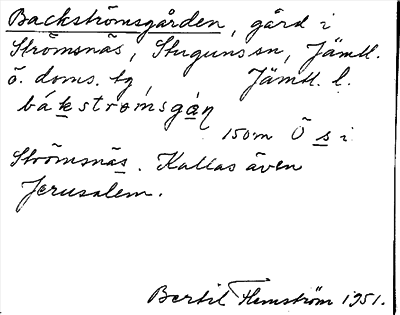 Backströmsgården, gård i
Strömsnäs, Stuguns sn, Jämtl.
ö. doms. tg Jämtl. l.
bákströmsgàṇ
150 m Ö s i
Strömsnäs. Kallas även
Jerusalem.
Bertil Flemström 1951.